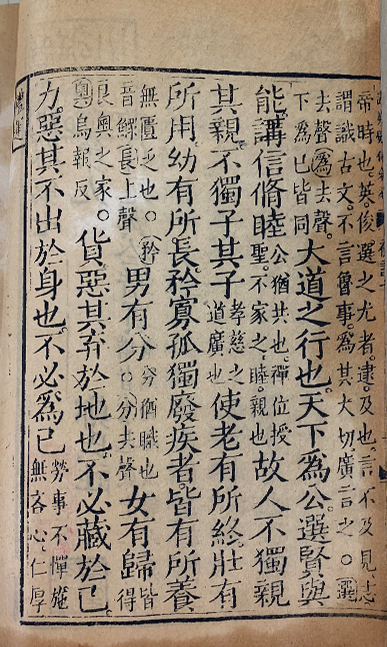 帝時也。英。俊選之尤者。逮。及也。言不及見。志
謂識古文。不言魯事。為其大切廣言之。○選
去聲。為去聲。
下為已皆同
大道之行也。天下為公。選賢與
能。講信脩睦。
公猶共也。禪位授
聖。不家之。睦親也
故人不獨親
其親。不獨子其子。
孝慈之
道廣也
使老有所終。壯有
所用。幼有所長。矜寡孤獨廢疾者。皆有所養
無匱乏也。○矜
音鰥長上聲
男有分。
分猶職也
○分去聲
女有歸
皆
得
良奧之家。
奧烏報反
貨惡其弃於地也。不必藏於己
力。惡其不出於身也。不必為己
勞事不憚施
無吝心仁厚